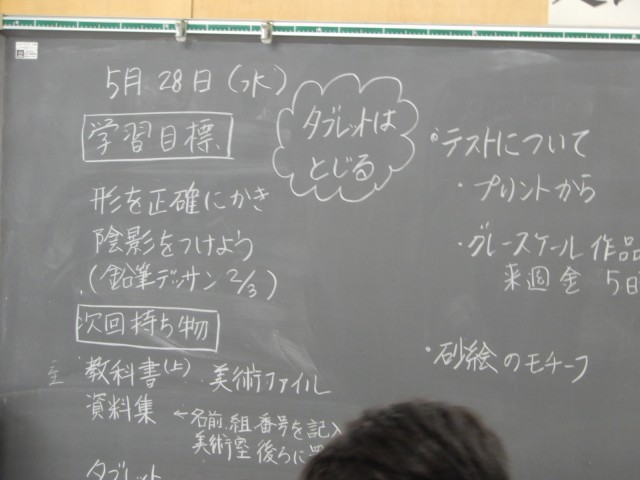 5月28日(水)
学習目標
タブレットは
とじる
形を正確にかき
陰影をつけよう
(鉛筆デッサン 2/3)
次回持ち物
教科書(上) 美術ファイル
資料集 ←名前、組、番号を記入
美術室 後ろに
タブレット
・テストについて
・プリントから
・グレースケール作品
来週金 5日
・砂絵のモチーフ